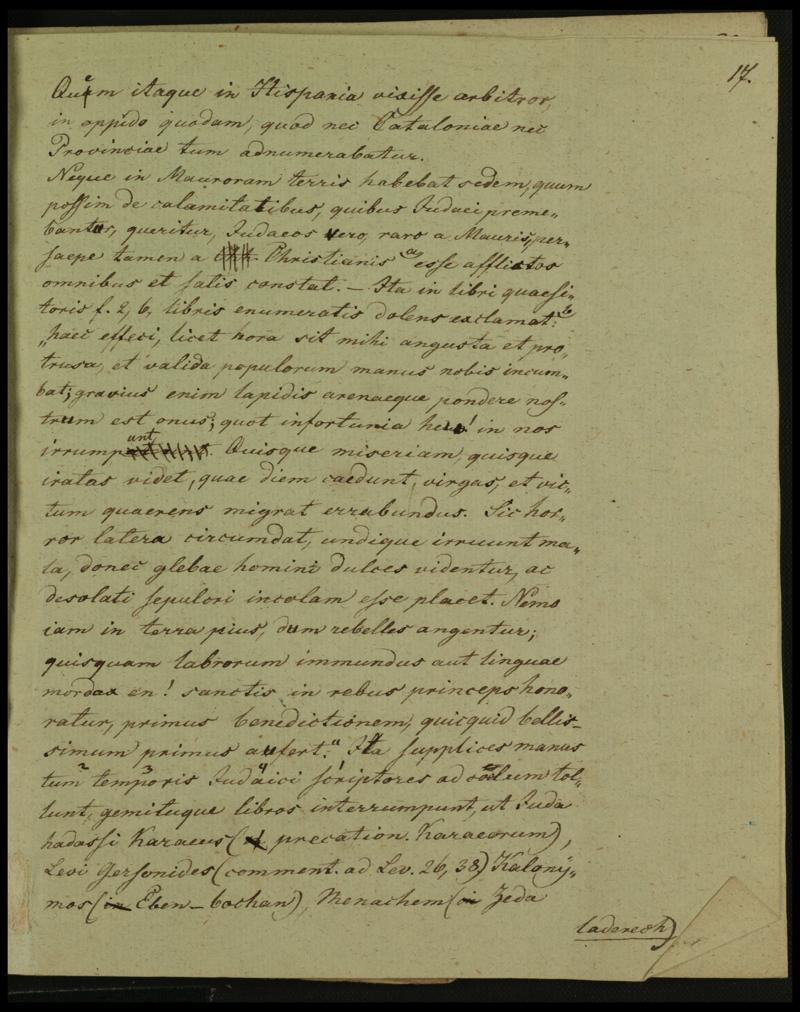 17.
Quem itaque in Hispania vixisse arbitror,
in oppido quodam, quod nec Cataloniae nec
Provinciae tum adnumerabatur.
Neque in Maurorum terris habebat sedem, quum
possim de calamitatibus, quibus Judaei preme-
bantur, queritur, Judaeos vero, raro a Mauris, per-
saepe tamen a Christianis esse afflictos
omnibus et satis constat. — Ita in libri quaesi-
toris f. 2, b, libris enumeratis dolens exclamat:
„haec effeci, licet hora sit mihi angusta et pro-
trusa, et valida populorum manus nobis incum-
bat; gravius enim lapidis arenaeque pondere nos-
trum est onus; quot infortunia heu! in nos
irrumpunt. Quisque miseriam, quisque
iratas videt, quae diem caedunt, virgas, et vic-
tum quaerens migrat errabundus. Sic hor-
ror latera circumdat, undique irruunt ma-
la, donec glebae homini dulces videntur, ac
desolati sepulcri incolam esse placet. Nemo
iam in terra pius, dum rebelles angentur;
quisquam labrorum immundus aut linguae
mordax en! sanctis in rebus princeps hono-
ratur, primus benedictionem, quicquid bellis-
simum primus aufert." Ita supplices manus
tum temporis Judaici scriptores ad coelum tol-
lunt, gemituque libros interrumpunt, ut Juda
hadassi Karaeus ( precation. Karaeorum),
Levi Gersonides (comment. ad Lev. 26, 38) Kalony-
mos (in Eben-bochan), Menachem (in Zeda
laderech)